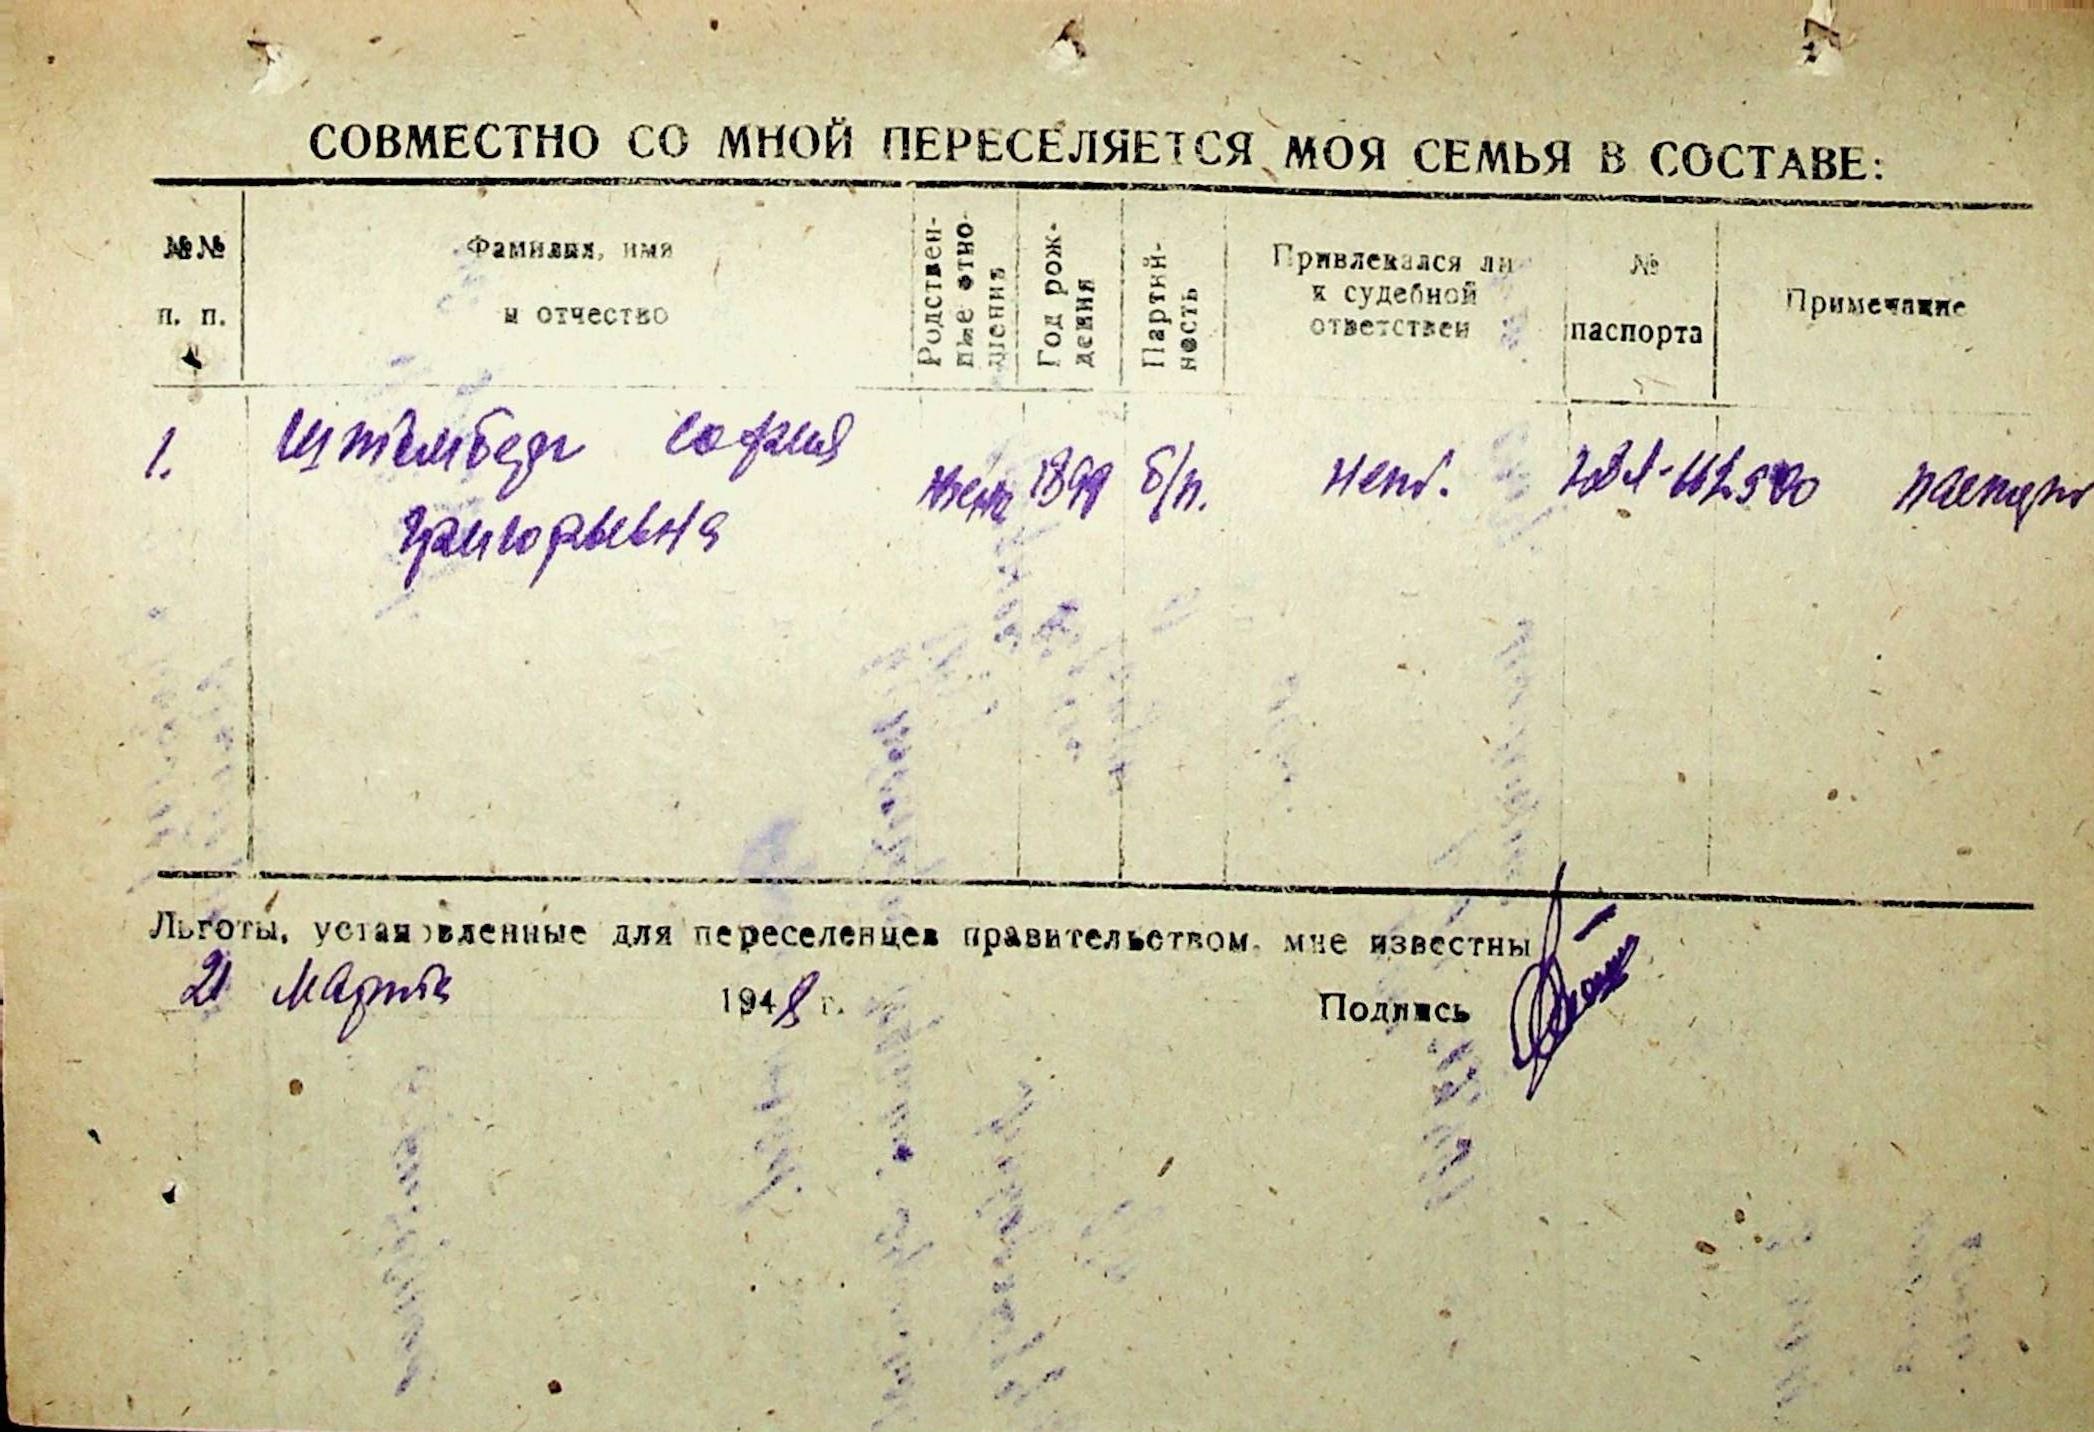 СОВМЕСТНО СО МНОЙ ПЕРЕСЕЛЯЕТСЯ МОЯ СЕМЬЯ В СОСТАВЕ:
№№ п. п.
Фамилия, имя и отчество
Родственные отношения
Год рождения
Партийность
Привлекался ли к судебной ответствен
№ паспорта
Примечание
1. Штемберг София жена 1899 б/п. нет. паспорт
Григорьевна
Льготы, установленные для переселенцев правительством, мне известны
21 Марта 1948 г. Подпись